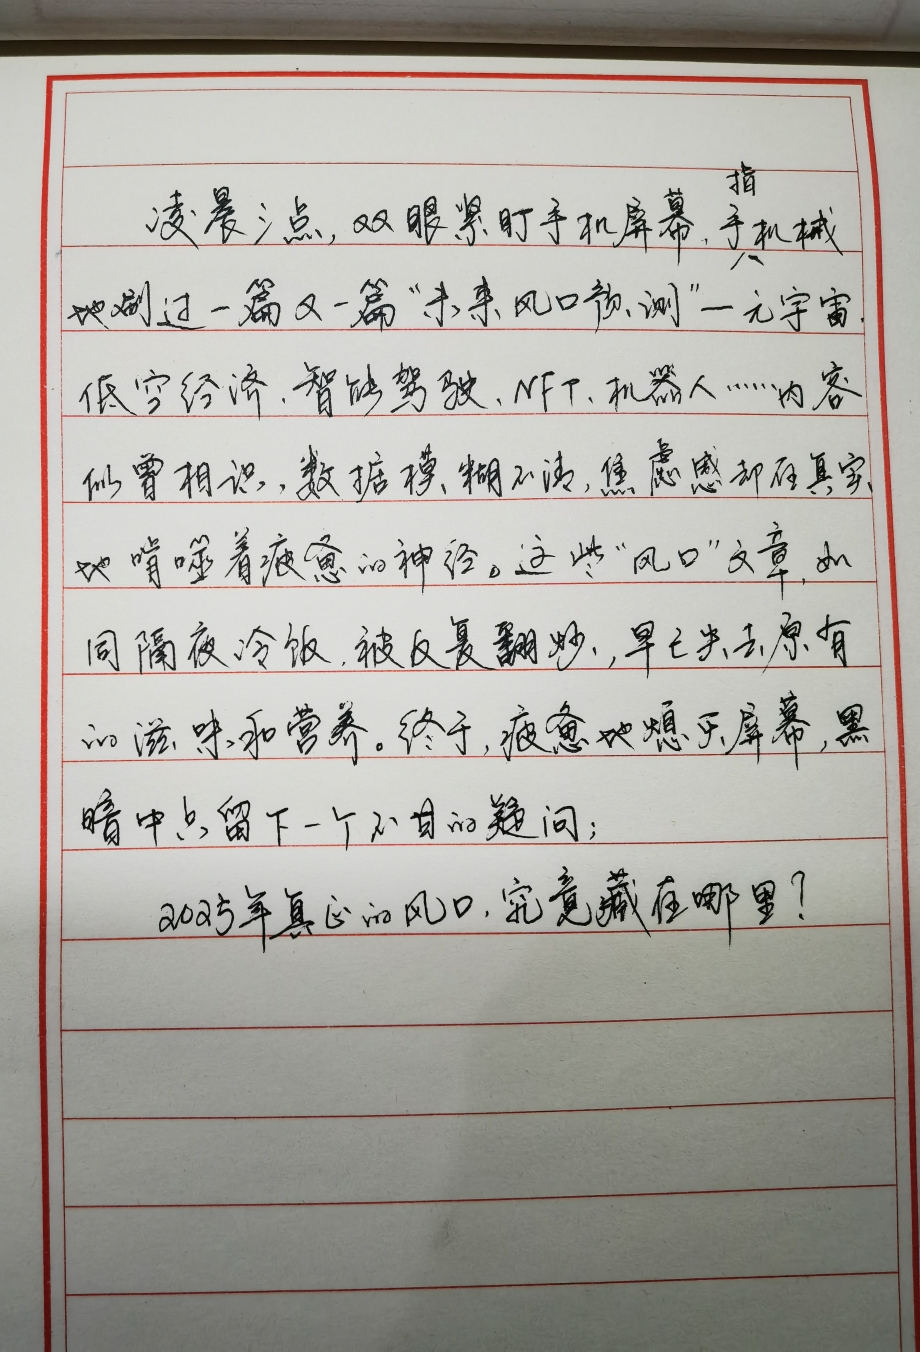 凌晨三点，双眼紧盯手机屏幕，手指机械
地刷过一篇又一篇“未来风口预测”—元宇宙、
低空经济、智能驾驶、NFT、机器人……内容
似曾相识，数据模糊不清，焦虑感却在真实
地啃噬着疲惫的神经。这些“风口”文章，如
同隔夜冷饭，被反复翻炒，早已失去原有
的滋味和营养。终于，疲惫地熄灭屏幕，黑
暗中只留下一个不甘的疑问：
2025年真正的风口，究竟藏在哪里？